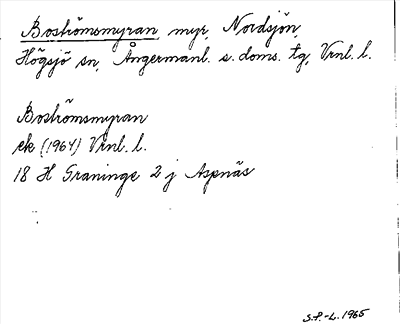 Boströmsmyran, myr, Nordsjön,
Högsjö sn, Ångermanl. s. doms. tg, Vrnl. l.
Boströmsmyran
ek (1964) Vrnl. l.
18 H Graninge 2 j Aspnäs
S.P.-L. 1965